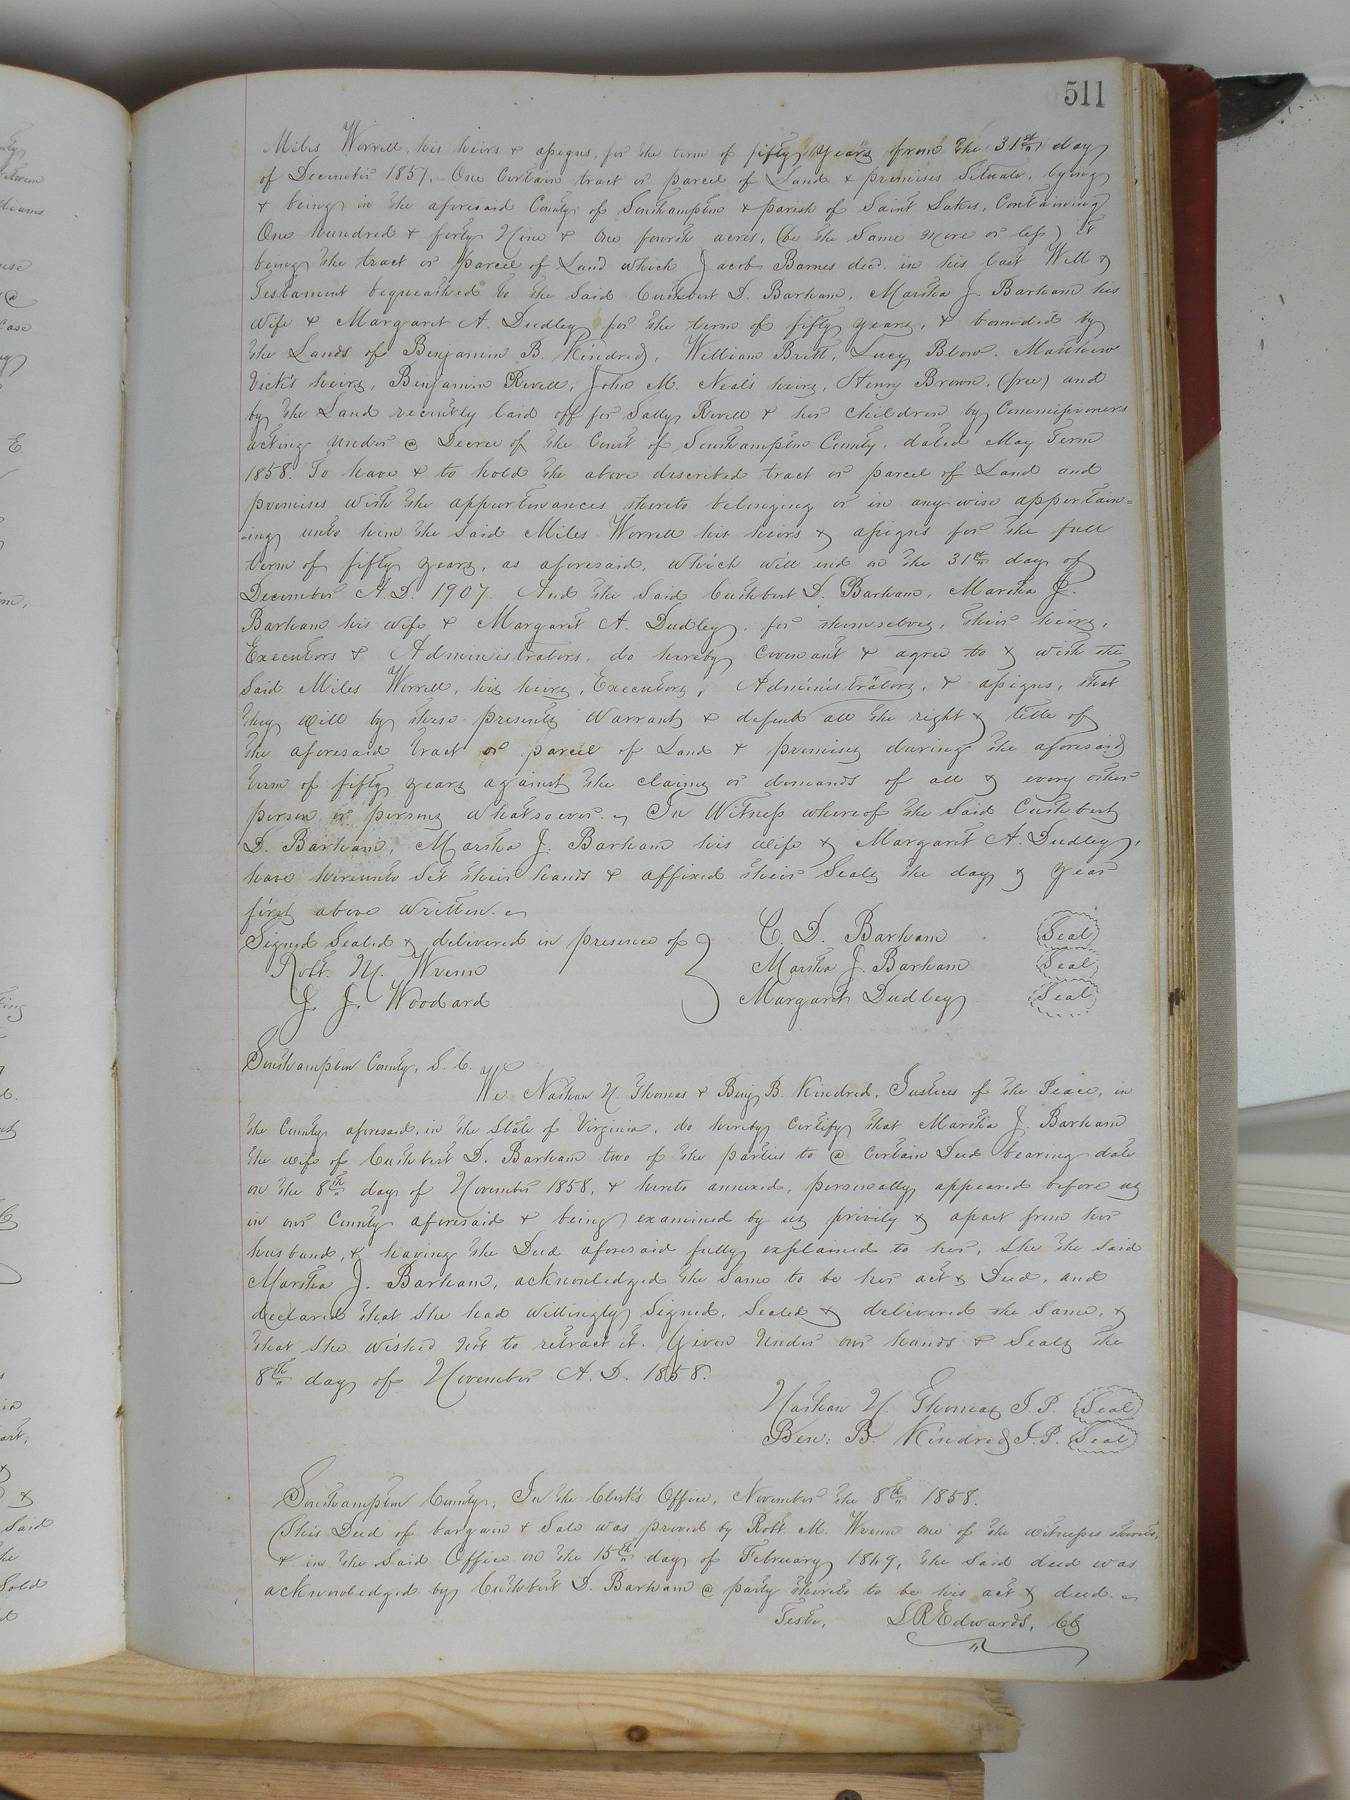 511
Miles Worrell, his heirs & assigns, for the term of fifty years from the 31st day
of December 1857. One Certain tract or parcel of Land & premises Situate, lying
& being in the aforesaid County of Southampton & parish of Saint Lukes, Containing
One hundred & forty Nine & One fourth acres, (be the Same more or less) it
being the tract or parcel of Land which Jacob Barnes decd. in his last Will &
Testament bequeathed to the Said Cuthbert D. Barham, Martha J. Barham his
Wife & Margaret A. Dudley for the term of fifty years, & bounded by
the Lands of Benjamin B. Kindred, William Britt, Lucy Blow, Matthew
Vick's heirs, Benjamin Revell, John M. Neal's heirs, Henry Brown, (free) and
by the Land recently laid off for Sally Revell & her Children by Commissioners
acting under a Decree of the Court of Southampton County, dated May Term
1858. To have & to hold the above described tract or parcel of Land and
premises with the appurtenances thereto belonging or in any wise appertain=
-ing unto him the Said Miles Worrell his heirs & assigns for the full
term of fifty years, as aforesaid, which will end on the 31st day of
December A.D. 1907. And the Said Cuthbert D. Barham, Martha J.
Barham his wife & Margaret A. Dudley, for themselves, their heirs,
Executors & Administrators, do hereby Covenant & agree to & with the
Said Miles Worrell, his heirs, Executors, Administrators, & assigns, that
they will by these presents Warrant & defend all the right & title of
the aforesaid tract or parcel of Land & premises during the aforesaid
term of fifty years against the claims or demands of all & every other
person or persons whatsoever. In Witness whereof the Said Cuthbert
D. Barham, Martha J. Barham his wife & Margaret A. Dudley,
have hereunto Set their hands & affixed their Seals the day & Year
first above Written.
Signed Sealed & delivered in presence of C. D. Barham Seal
Robt. M. Wrenn Martha J. Barham Seal
J. J. Woodard Margaret Dudley Seal
Southampton County, S. C.
We Nathan N. Thomas & Benj B. Kindred, Justices of the Peace, in
the County aforesaid, in the State of Virginia, do hereby Certify that Martha J. Barham
the wife of Cuthbert D. Barham two of the parties to a Certain Deed bearing date
on the 8th day of November 1858, & hereto annexed, personally appeared before us
in our County aforesaid & being examined by us privily & apart from her
husband, & having the Deed aforesaid fully explained to her, She the Said
Martha J. Barham, acknowledged the Same to be her act & Deed, and
declared that She had willingly Signed, Sealed & delivered the Same, &
that She wished Not to retract it. Given Under our hands & Seals the
8th day of November A. D. 1858.
Nathan N. Thomas J. P. Seal
Ben: B. Kindred J. P. Seal
Southampton County, In the Clerk's Office, November the 8th 1858.
This Deed of bargain & Sale was proved by Robt. M. Wrenn one of the witnesses thereto,
& in the Said Office on the 15th day of February 1849, the Said deed was
acknowledged by Cuthbert D. Barham a party thereto to be his act & deed.
Teste, L R Edwards, Clk